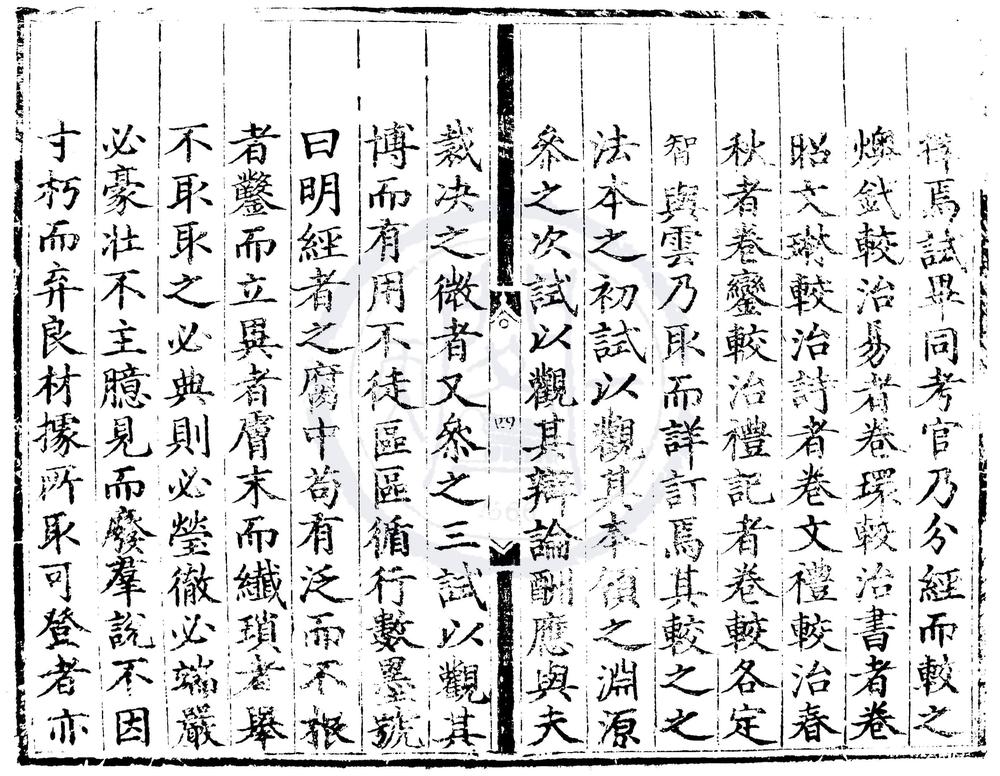 擇焉試畢同考官乃分經而較之
煥鉞較治易者卷環較治書者卷
昭文琳較治詩者卷文禮較治春
秋者卷鑾較治禮記者卷較各定
智與雲乃取而詳訂焉其較之之
法本之初試以觀其本領之淵源
叅之次試以觀其辯論酬應與夫
裁决之微者又叅之三試以觀其
四
博而有用不徒區區循行數墨號
曰明經者之腐中苟有泛而不根
者鑿而立異者膚末而纖瑣者舉
不取取之必典則必瑩徹必端嚴
必豪壯不主臆見而廢羣說不因
寸朽而弃良材據所取可登者亦